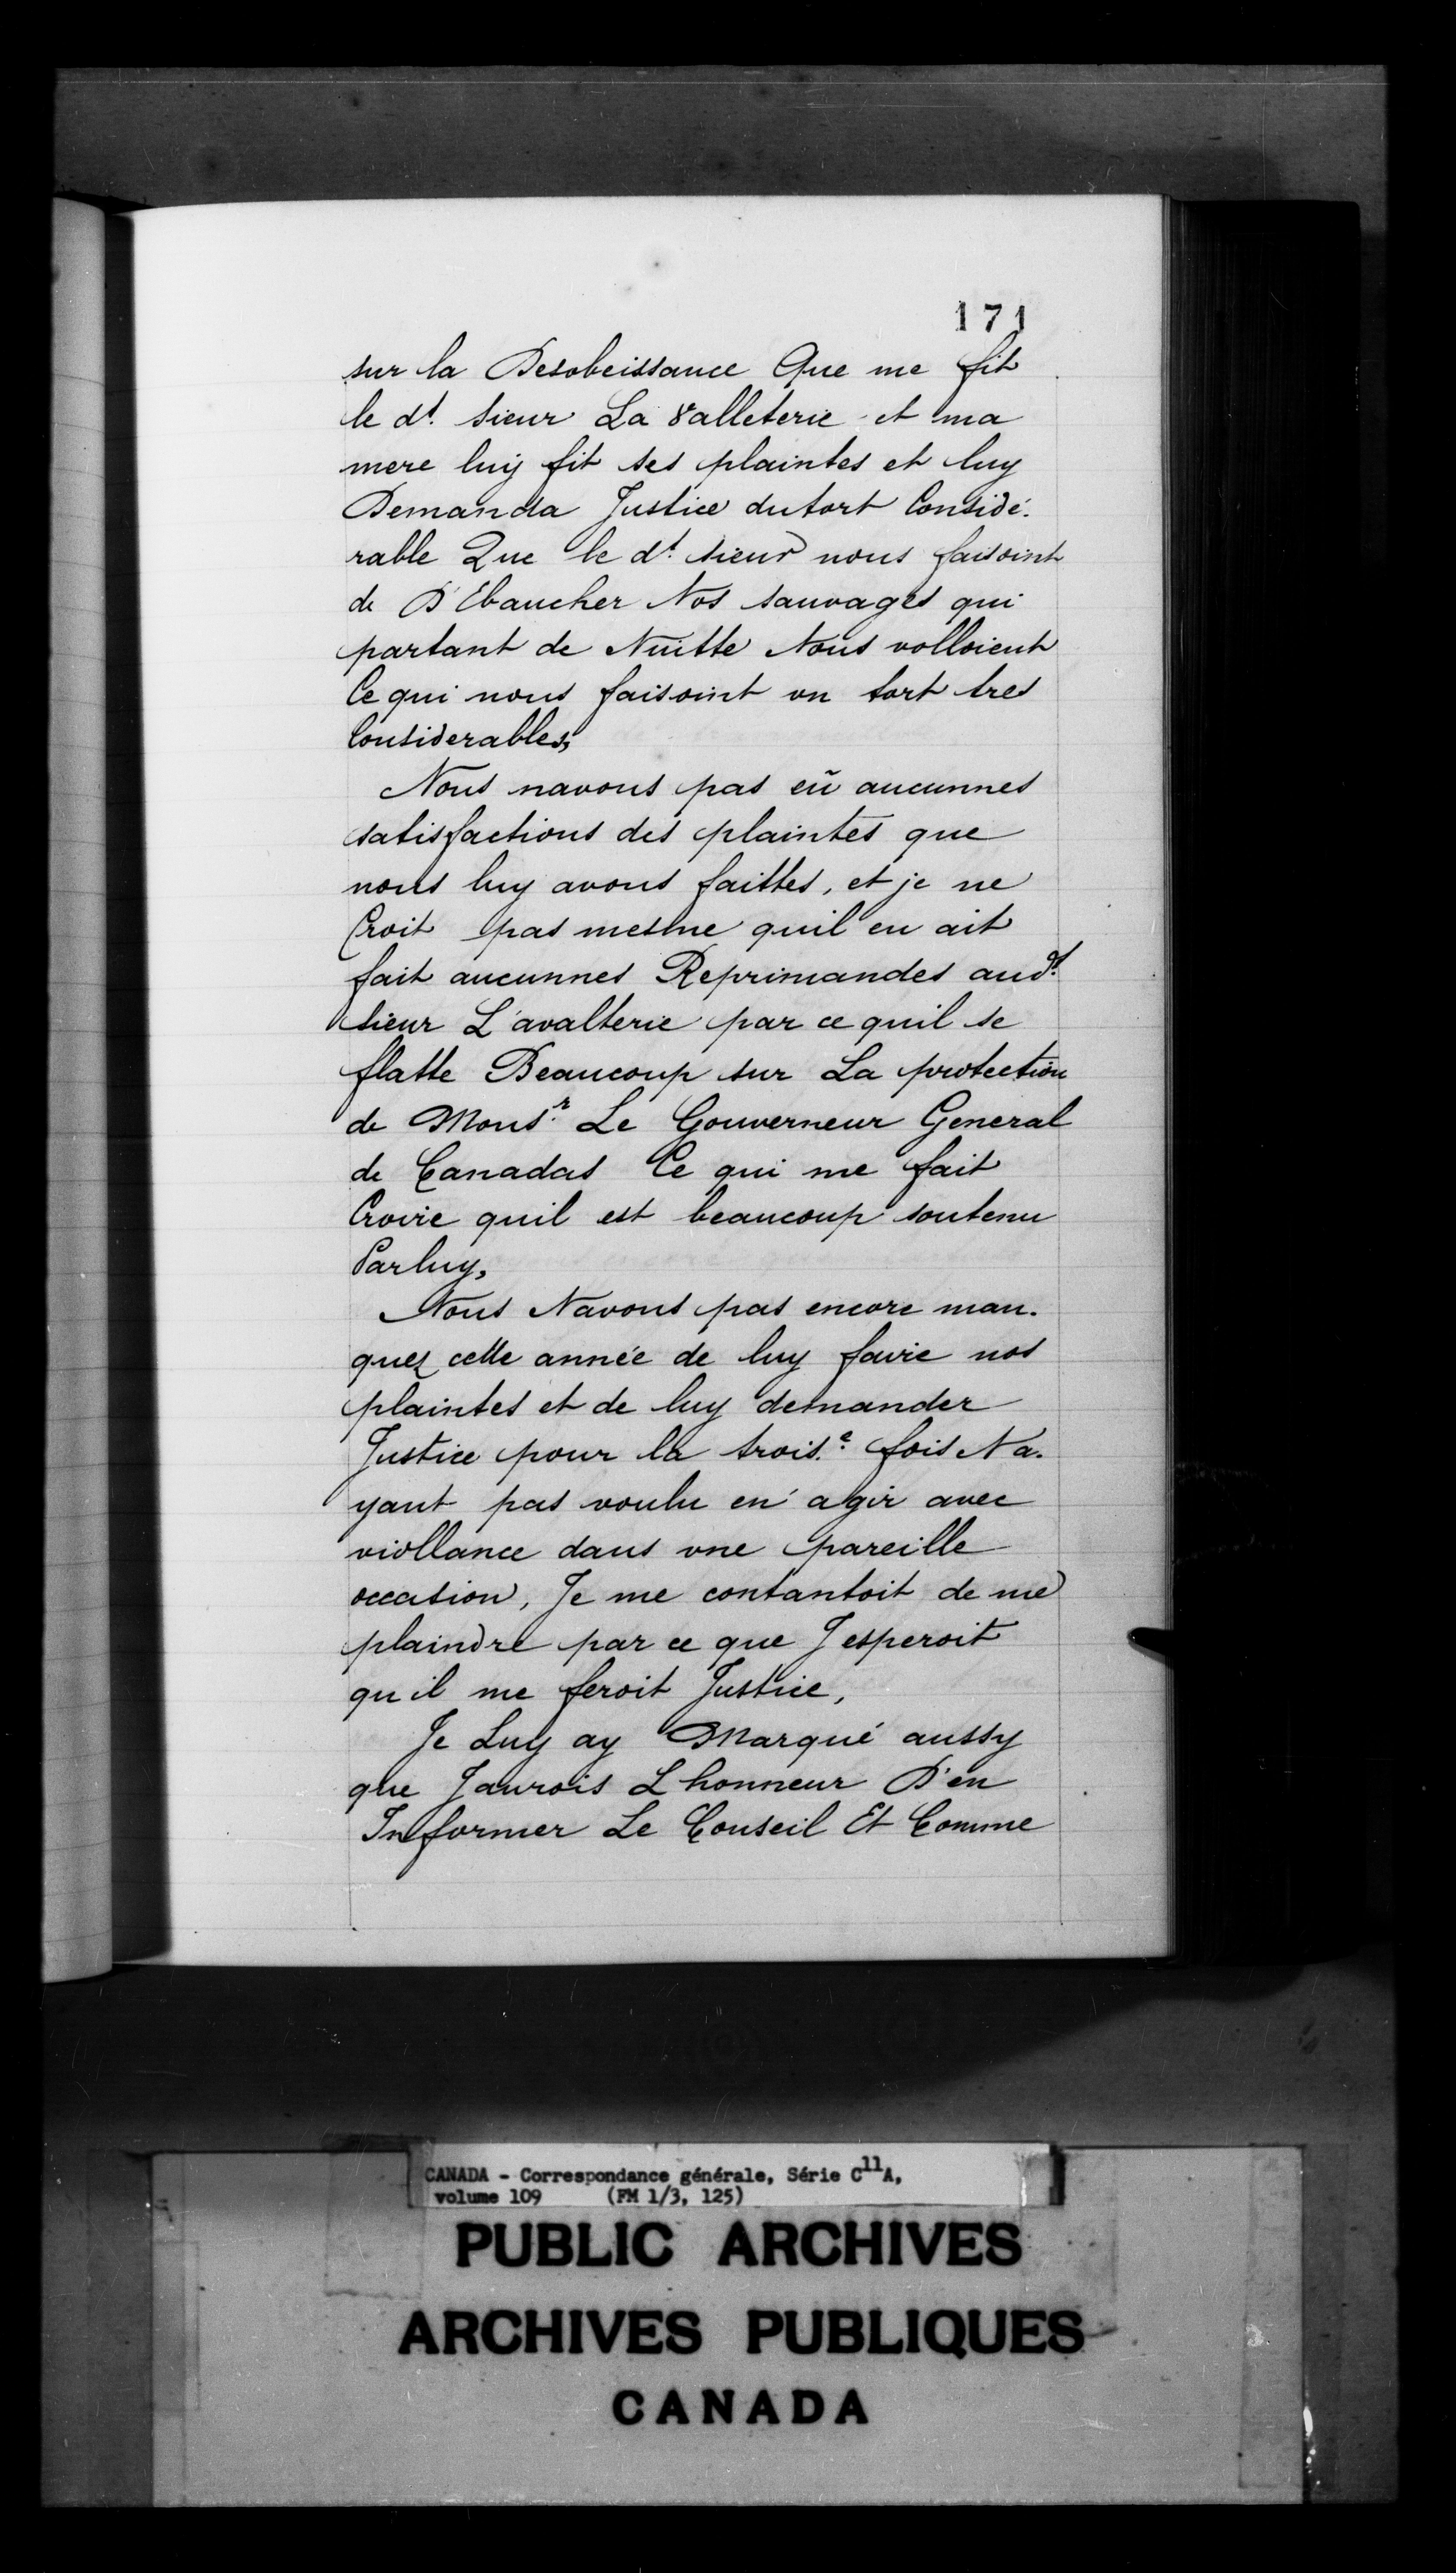 171
sur la Desobeissance Que me fit
le d.t sieur La 8alleterie et ma
mere luy fit ses plaintes et luy
Demanda Justice dutort Considé-
rable Que le d.t sieur nous faisoint
de D'Ebaucher Nos sauvages qui
partant de Nuitte Nous volloient
Ce qui nous faisoint un tort tres
Considerables,
Nous navons pas eü aucunnes
satisfactions des plaintes que
nous luy avons faittes, et je ne
Croit pas mesme quil en ait
fait aucunnes Reprimandes aud.t
sieur L'avalterie par ce quil se
flatte Beaucoup sur La protection
de Mons.r Le Gouverneur General
de Canadas Ce qui me fait
Croire quil est beaucoup soutenu
Parluy,
Nous Navons pas encore man-
quez cette année de luy faire nos
plaintes et de luy demander
Justice pour la trois.e fois Na-
yant pas voulu en agir avec
viollance dans une pareille
occasion, Je me contantoit de me
plaindre par ce que Jesperoit
qu il me feroit Justice,
Je Luy ay Marqué aussy
que Jaurois L honneur D'en
Informer Le Conseil Et Comme
CANADA - Correspondance générale, Série C11A,
volume 109 (FM 1/3, 125)
PUBLIC ARCHIVES
ARCHIVES PUBLIQUES
CANADA